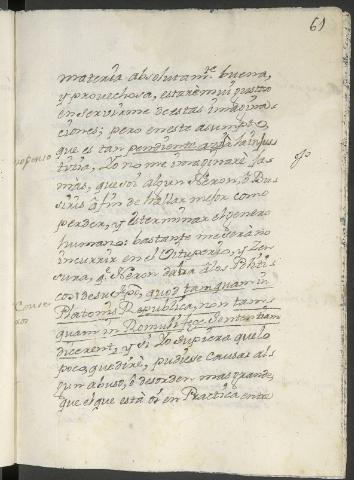 61
materia absolutam.te buena,
y provechosa, estaré mui gustoso
en servirme de estas imagina-
ciones; pero en este asumpto,
que es tan pendiente a la injus-
propenso
ticia, Yo no me imaginaré ja-
más, que soi algun Neron, o Bu-
siris a fin de hallar mejor como
perder, y esterminar el genero
humano: bastante me seria
incurrir en el Vituperio, y cen-
sura, q.e Neron daba a los Políti-
cos de su tpo, quod tamquam in
Platonis Republica, non tam-
quam in Romuli fæce sententiam
dicerent, y si Yo supiera que lo
poco, que diré, pudiese causar al-
gun abuso, o desorden mas grande,
que el que está oi en Practica entre